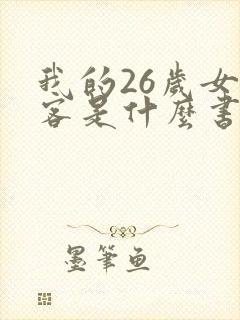 我的26歲女
客是什麼書
墨筆魚